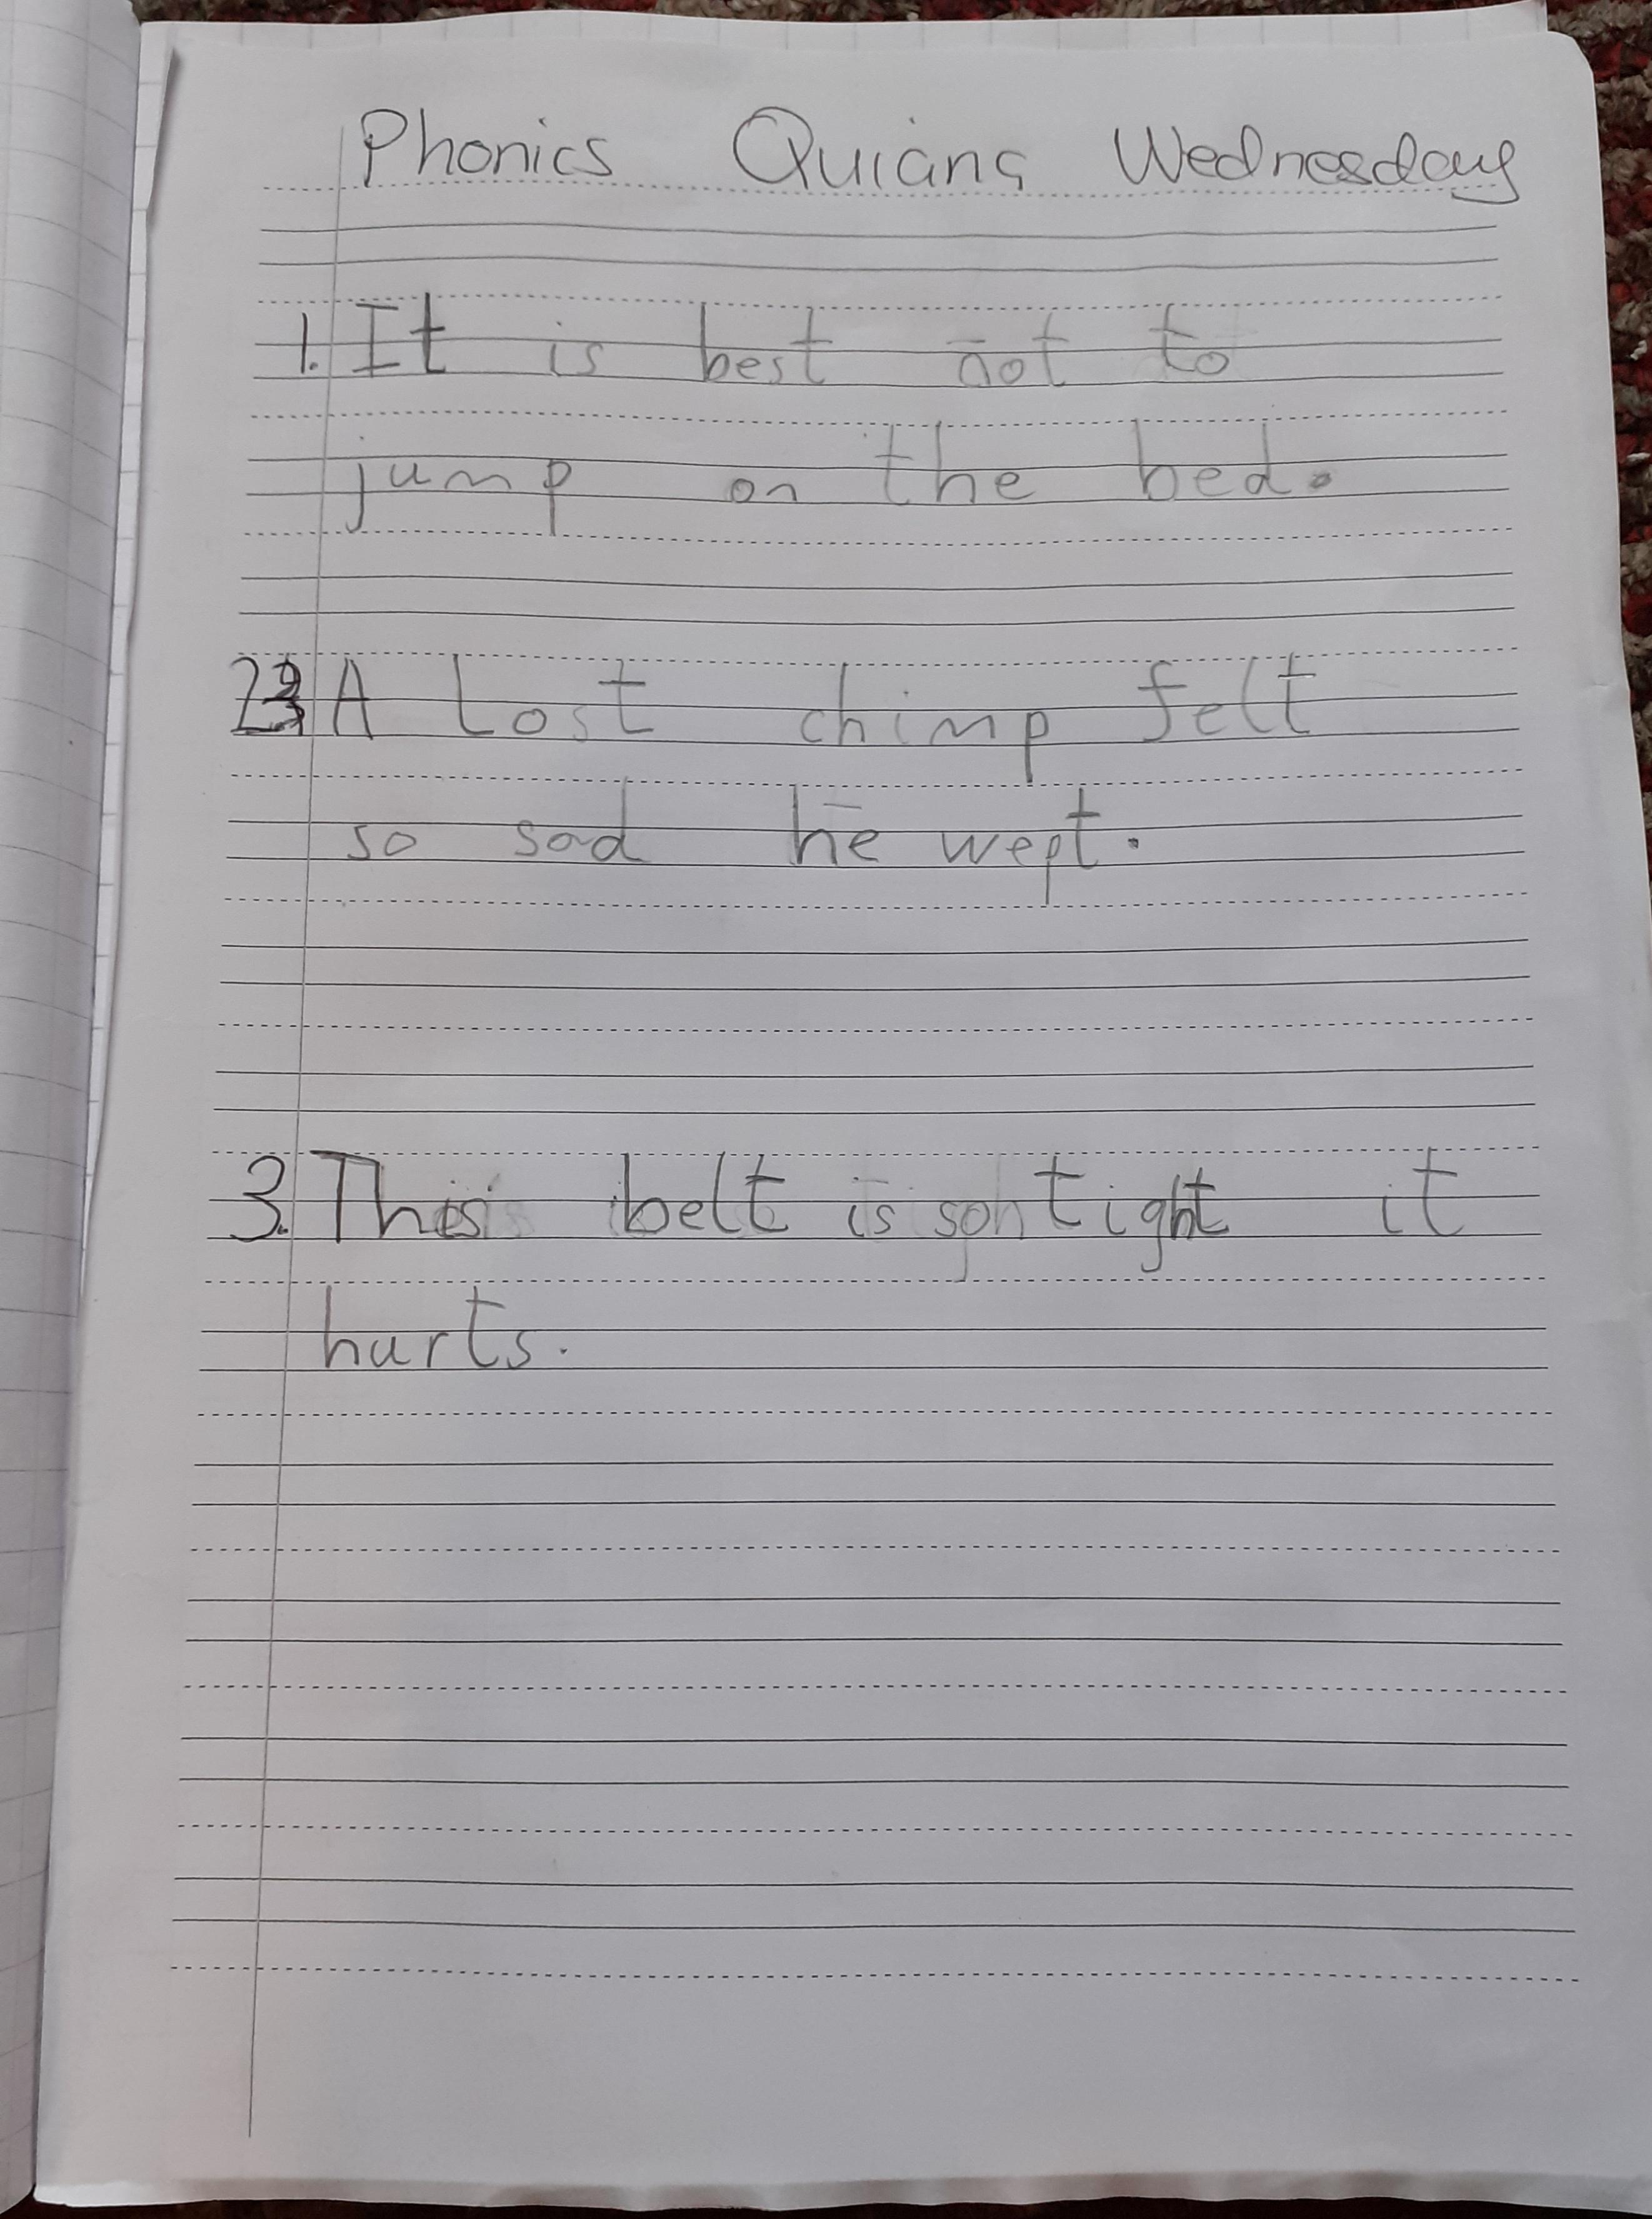 Phonics Quiana Wednesday
1. It is best not to
jump on the bed.
2. A lost chimp felt
so sad he wept.
3. This belt is so tight it
hurts.